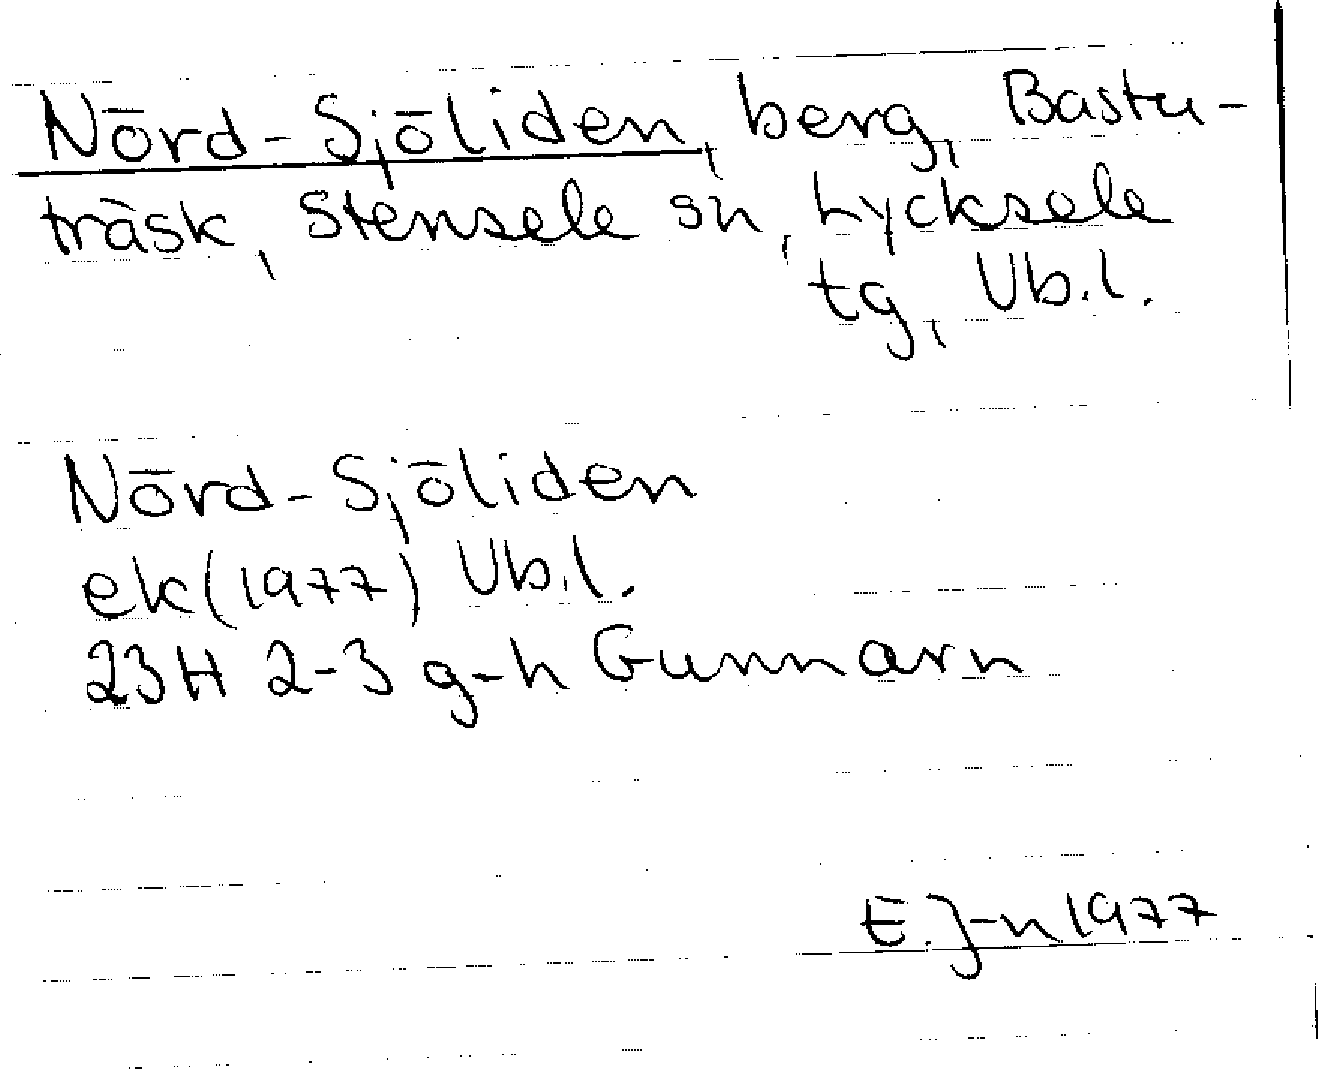 Nörd-Sjöliden, berg, Bastu-
träsk, Stensele sn, Lycksele
tg, Vb.l.
Nörd-Sjöliden
ek(1977) Vb.l.
23H 2-3 g-h Gunnarn
E.J-n 1977